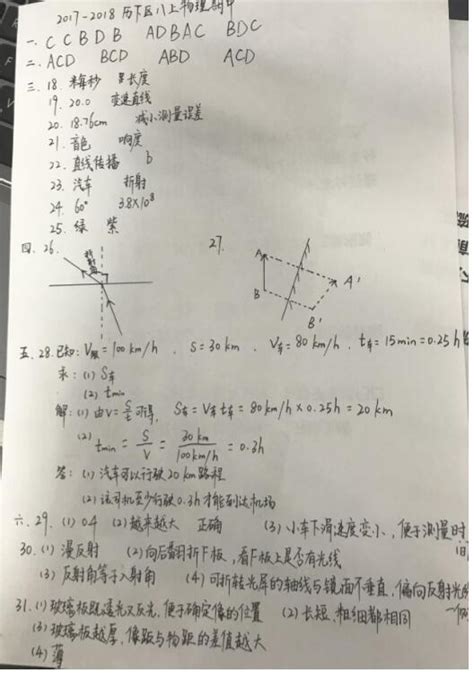 2017-2018 历下区八上物理期中
一. C C B D B A D B A C B D C
二. ACD BCD ABD ACD
三. 18. 米每秒 长度
19. 20.0 变速直线
20. 18.76cm 减小测量误差
21. 音色 响度
22. 直线传播 b
23. 汽车 折射
24. 60° 3.8×10⁸
25. 绿 紫
四. 26. 27.
折射角
A A' B B'
五. 28. 已知: V限=100km/h . S=30km . V车=80km/h . t车=15min=0.25h
求: (1) S车
(2) tmin
解: (1) 由v=S/t可得, S车=V车t车=80km/h×0.25h=20km
(2) tmin=S/V=30km/100km/h=0.3h
答: (1) 汽车可以行驶20km路程
(2) 该司机至少行驶0.3h才能到达机场
六. 29. (1) 0.4 (2) 越来越大 正确 (3) 小车下滑速度变小, 便于测量时
30. (1) 漫反射 (2) 向后翻折F板, 看F板上是否有光线
(3) 反射角等于入射角 (4) 可折转光屏的轴线与镜面不垂直, 偏向反射光
31. (1) 玻璃板既透光又反光, 便于确定像的位置 (2) 长短、粗细都相同
(3) 玻璃板越厚, 像距与物距的差值越大
(4) 薄